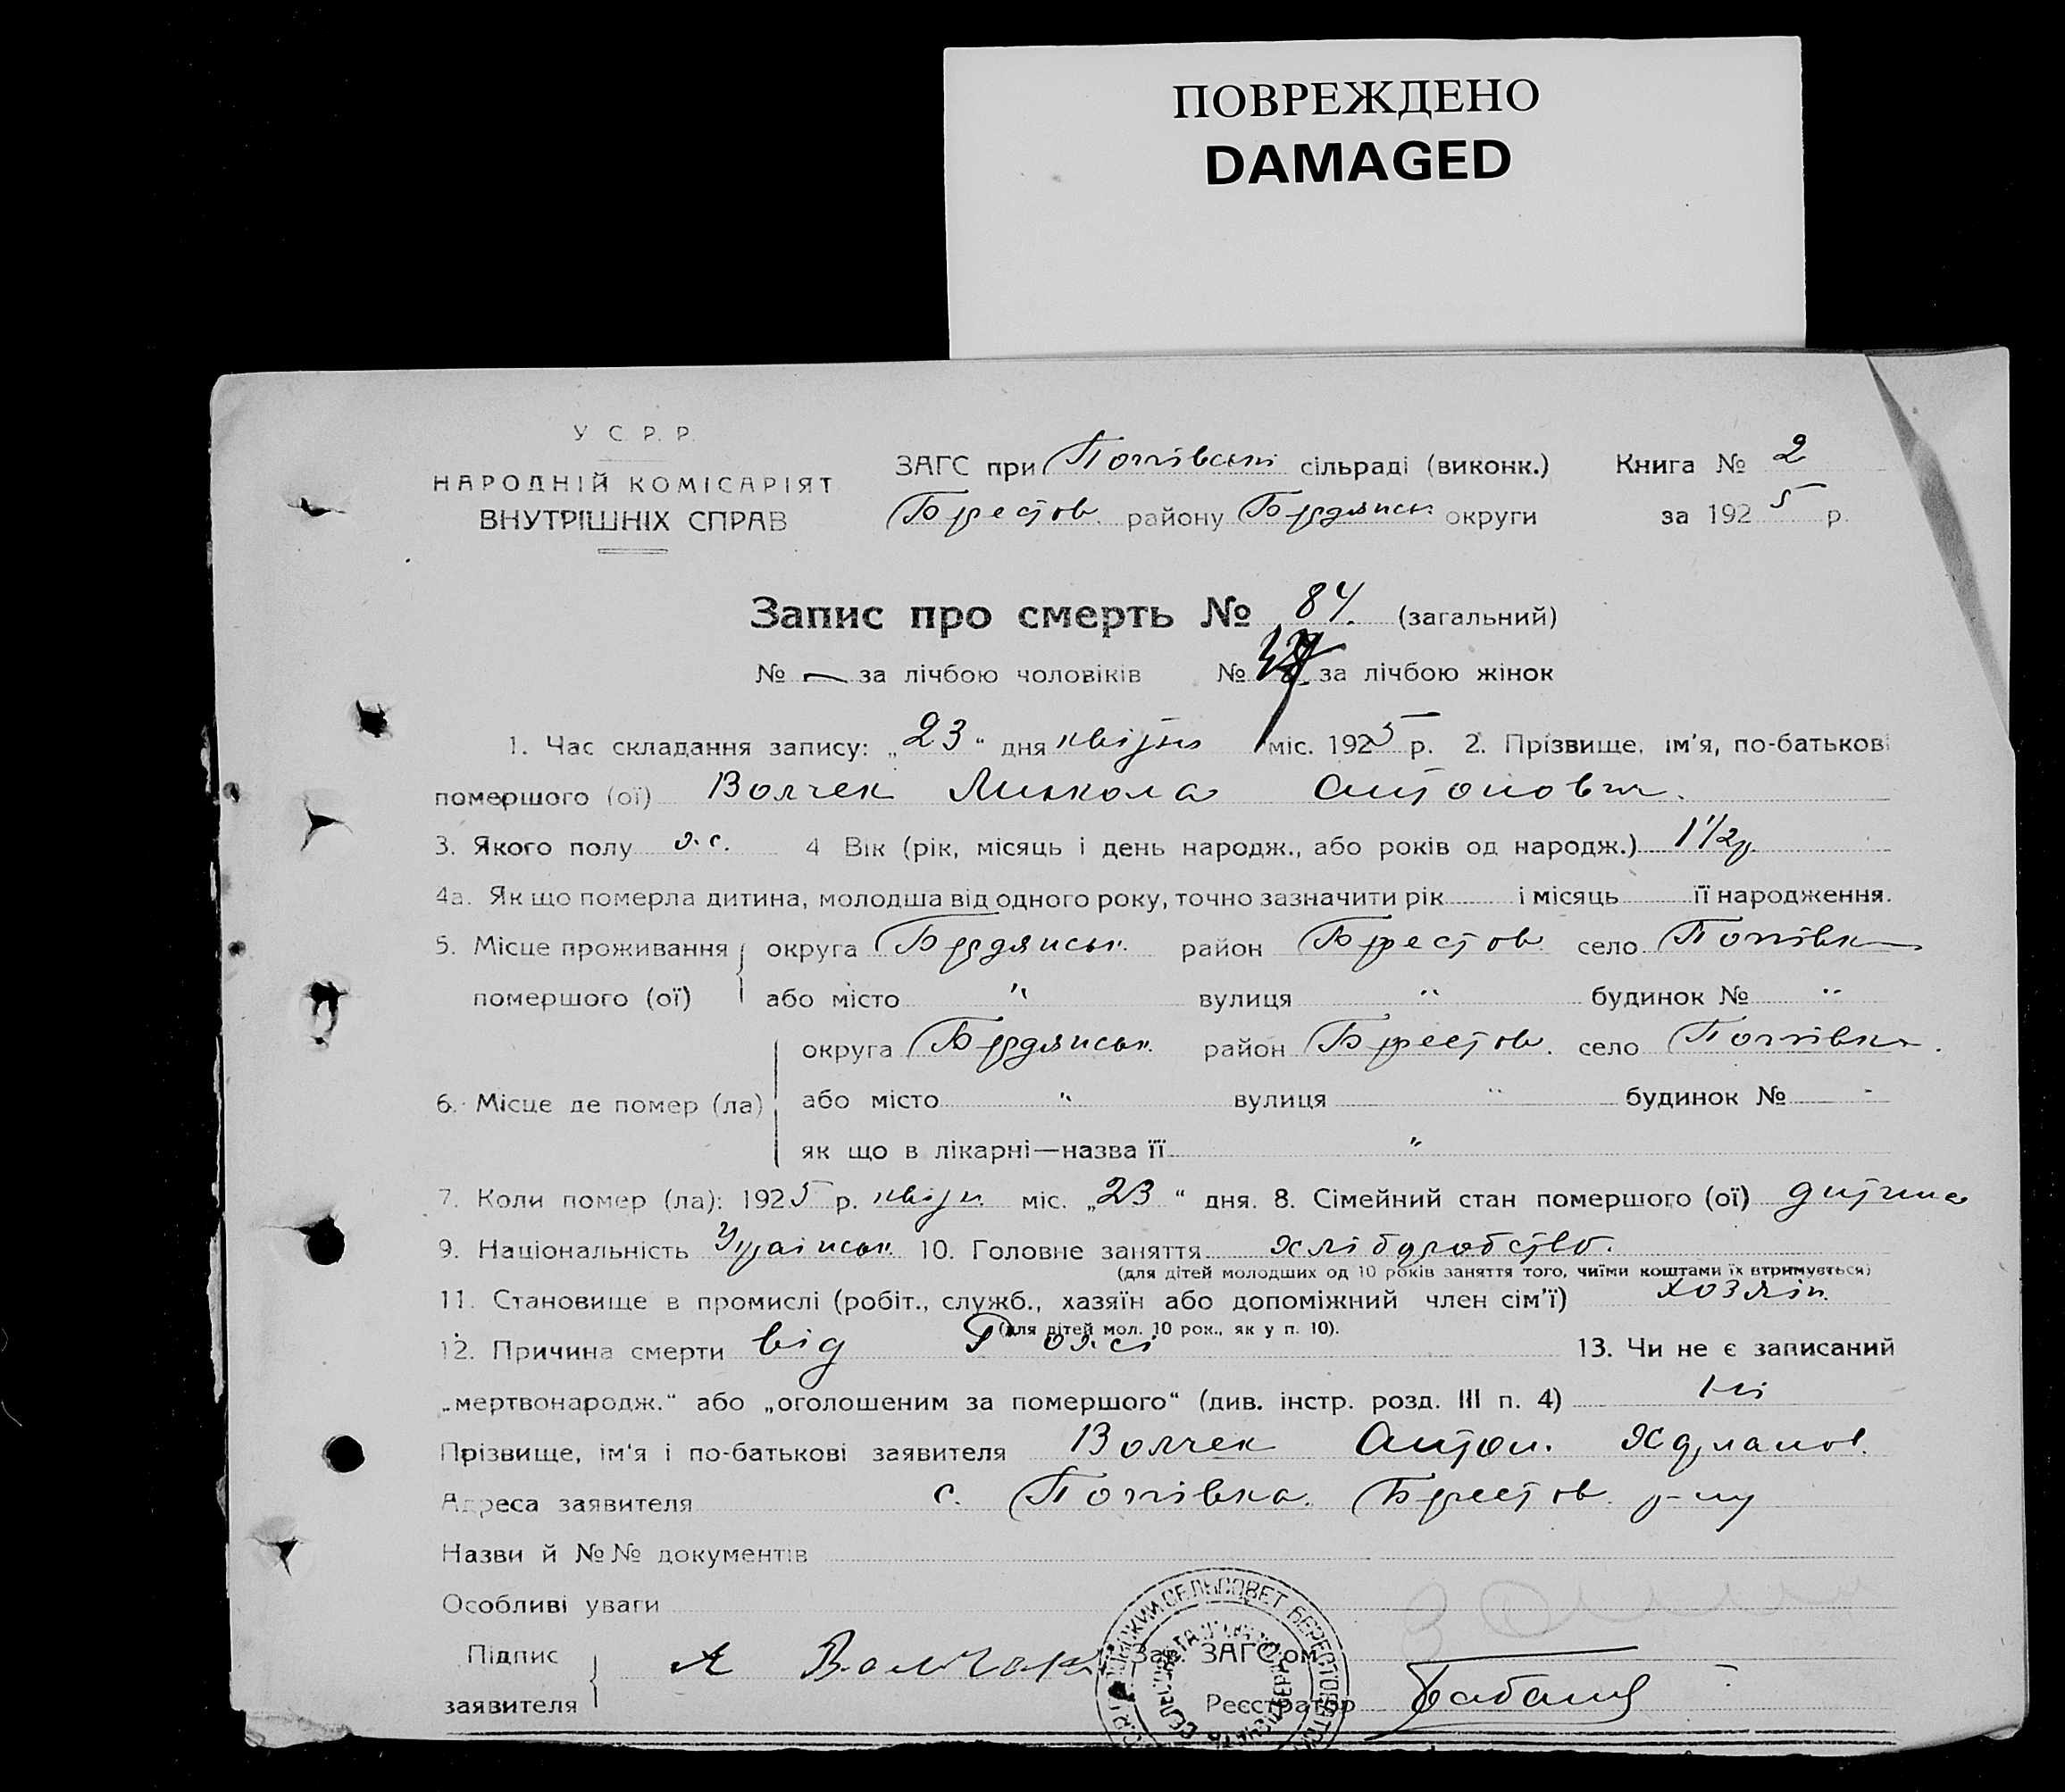 ПОВРЕЖДЕНО
DAMAGED
У С. Р. Р.
НАРОДНІЙ КОМІСАРІЯТ
ВНУТРІШНІХ СПРАВ
ЗАГС при Попівські сільраді (виконк.) Книга № 2
Берестов. району Бердянськ округи за 1925 р.
Запис про смерть № 84. (загальний)
№ — за лічбою чоловіків № за лічбою жінок
1. Час складання запису: „23“ дня квітня міс. 1925 р. 2. Прізвище, ім'я, по-батькові
помершого (ої) Волчек Микола Антонович.
3. Якого полу 4 Вік (рік, місяць і день народж., або років од народж.) 1 1/2 р.
4а. Як що померла дитина, молодша від одного року, точно зазначити рік і місяць її народження.
5. Місце проживання округа Бердянськ. район Берестов. село Попівка
помершого (ої) або місто " вулиця " будинок № "
округа Бердянськ. район Берестов. село Попівка.
6. Місце де помер (ла) або місто " вулиця " будинок № -
як що в лікарні—назва її "
7. Коли помер (ла): 1925 р. квітн. міс. „23“ дня. 8. Сімейний стан помершого (ої) дитина
9. Національність Українськ. 10. Головне заняття хліборобство.
(для дітей молодших од 10 років заняття того, чиїми коштами їх втримується)
11. Становище в промислі (робіт., служб., хазяїн або допоміжний член сім'ї) хозяїн.
(для дітей мол. 10 рок., як у п. 10).
12. Причина смерти від Рожі 13. Чи не є записаний
„мертвонародж.“ або „оголошеним за помершого“ (див. інстр. розд. III п. 4) ні
Прізвище, ім'я і по-батькові заявителя Волчек Антон.
Адреса заявителя с. Попівка. Берестов. р-ну
Назви й №№ документів
Особливі уваги
Підпис
заявителя А Волчек
Зав. ЗАГС'ом
Реєстратор
СЕЛЬСОВЕТ БЕРЕСТОВ